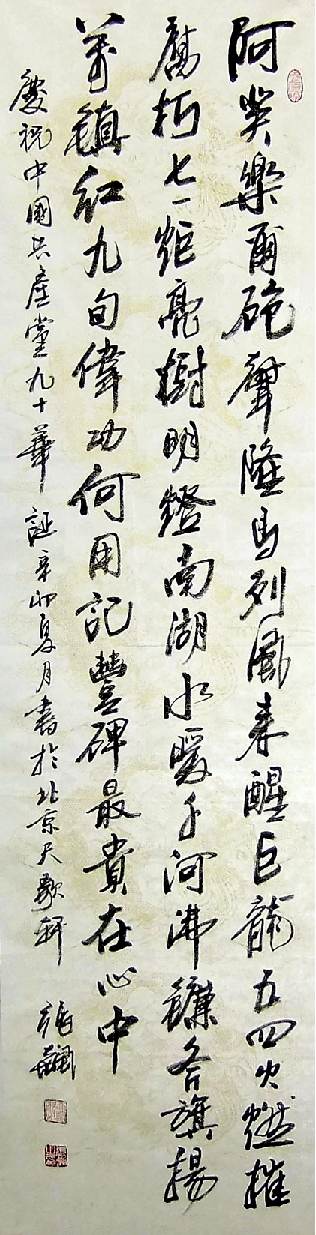 阿芙樂爾砲聲隆馬列風來醒巨龍五四火燃摧
腐朽七一炬亮樹明鐙南湖水暖千河沸鐮斧旗揚
萬鎮紅九旬偉功何用記豐碑最貴在心中
慶祝中國共產黨九十華誕辛卯夏月書於北京天歌軒 張飆